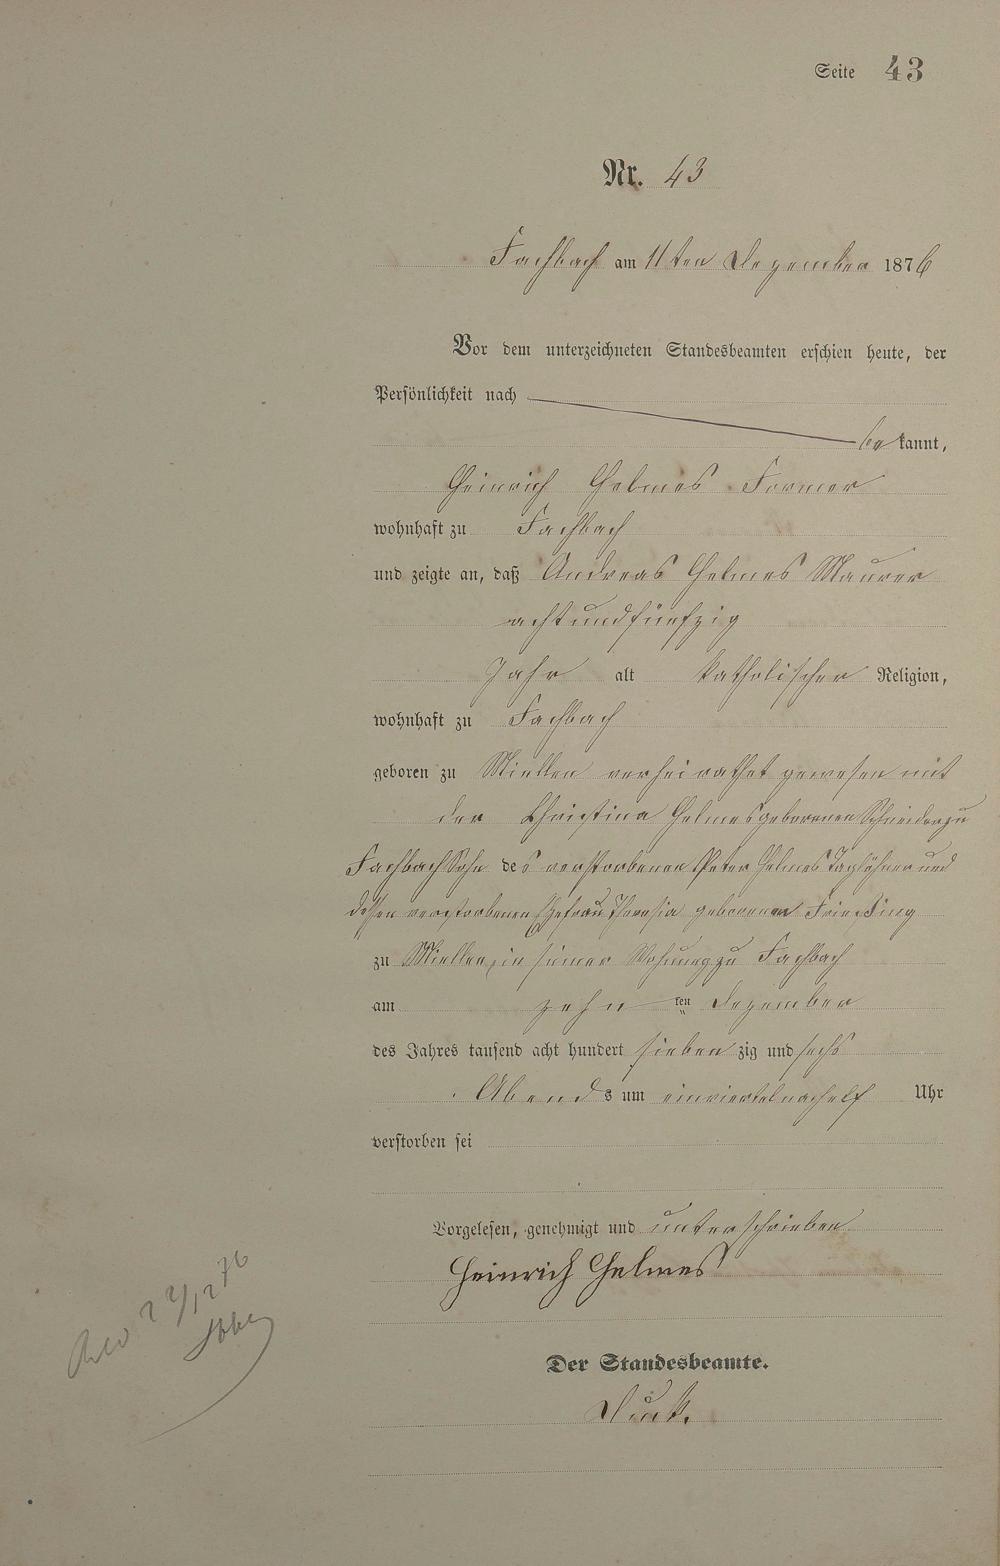 Seite 43
Nr. 43
Fachbach am 11ten Dezember 1876
Vor dem unterzeichneten Standesbeamten erschien heute, der
Persönlichkeit nach
bekannt,
Heinrich Helmes Former
wohnhaft zu Fachbach
und zeigte an, daß Andreas Helmes Maurer
achtundfünfzig
Jahr alt katholischer Religion,
wohnhaft zu Fachbach
geboren zu Miellen verheirathet gewesen mit
der Christina Helmes geborenen Schneider zu
Fachbach Sohn des verstorbenen Peter Helmes Taglöhner und
dessen verstorbenen Ehefrau Theresia geborenen
zu Miellen, in seiner Wohnung zu Fachbach
am zehnten Dezember
des Jahres tausend acht hundert siebenzig und sechs
Abends um einviertelnachelf Uhr
verstorben sei
Vorgelesen, genehmigt und unterschrieben
Heinrich Helmes
Der Standesbeamte.
22/12 76